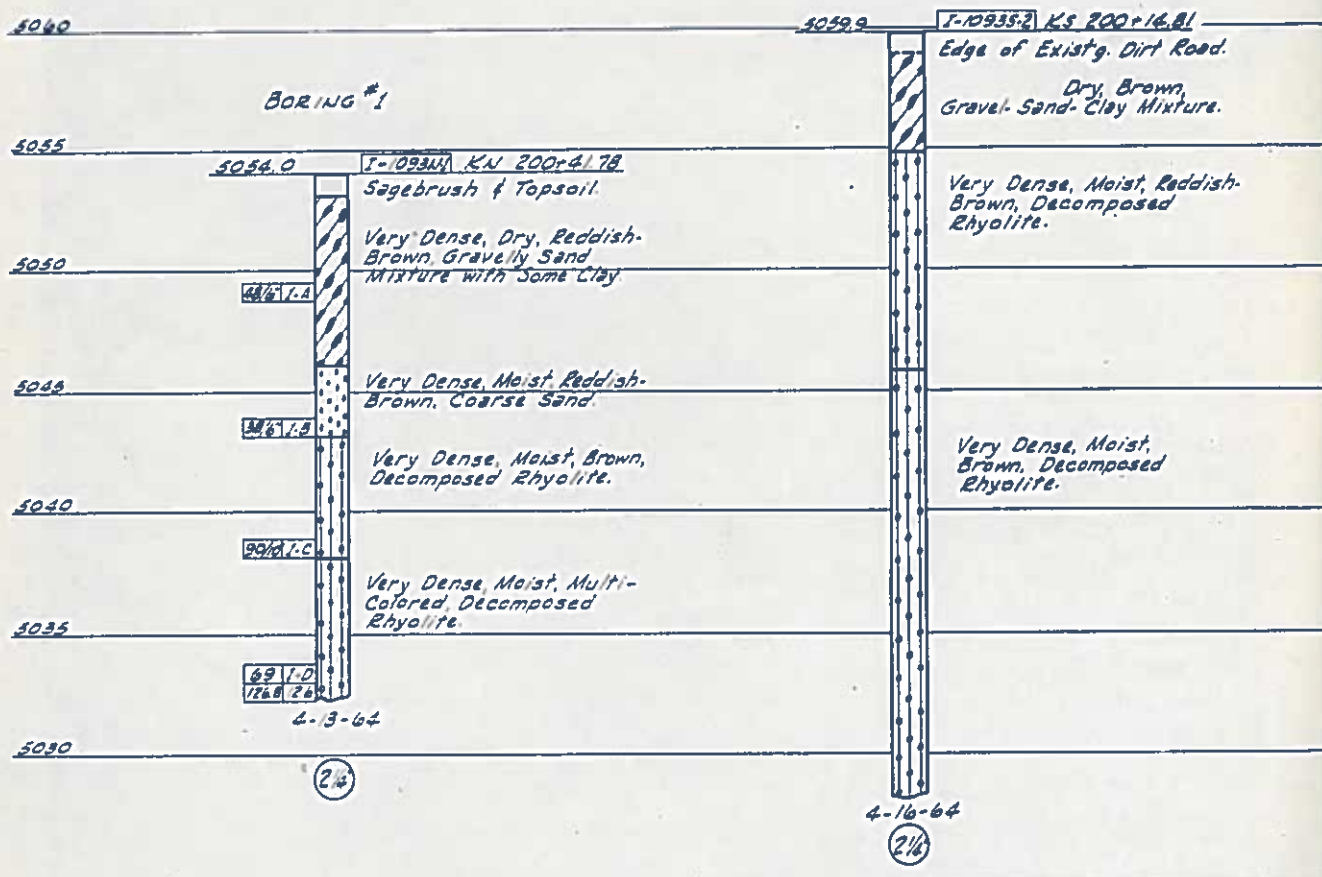 5060
5059.9
I-1093S-2 KS 200+14.81
Edge of Existg. Dirt Road.
Dry, Brown,
Gravel-Sand-Clay Mixture.
BORING #1
5055
5054.0
KN 200+41.78
Sagebrush & Topsoil.
Very Dense, Dry, Reddish-
Brown, Gravelly Sand
Mixture with Some Clay.
Very Dense, Moist, Reddish-
Brown, Decomposed
Rhyolite.
5050
I-A
5045
Very Dense, Moist, Reddish-
Brown, Coarse Sand.
I-B
Very Dense, Moist, Brown,
Decomposed Rhyolite.
Very Dense, Moist,
Brown, Decomposed
Rhyolite.
5040
90/10 I-C
Very Dense, Moist, Multi-
Colored, Decomposed
Rhyolite.
5035
69 I-D
4-13-64
5030
2¼
4-16-64
2¼